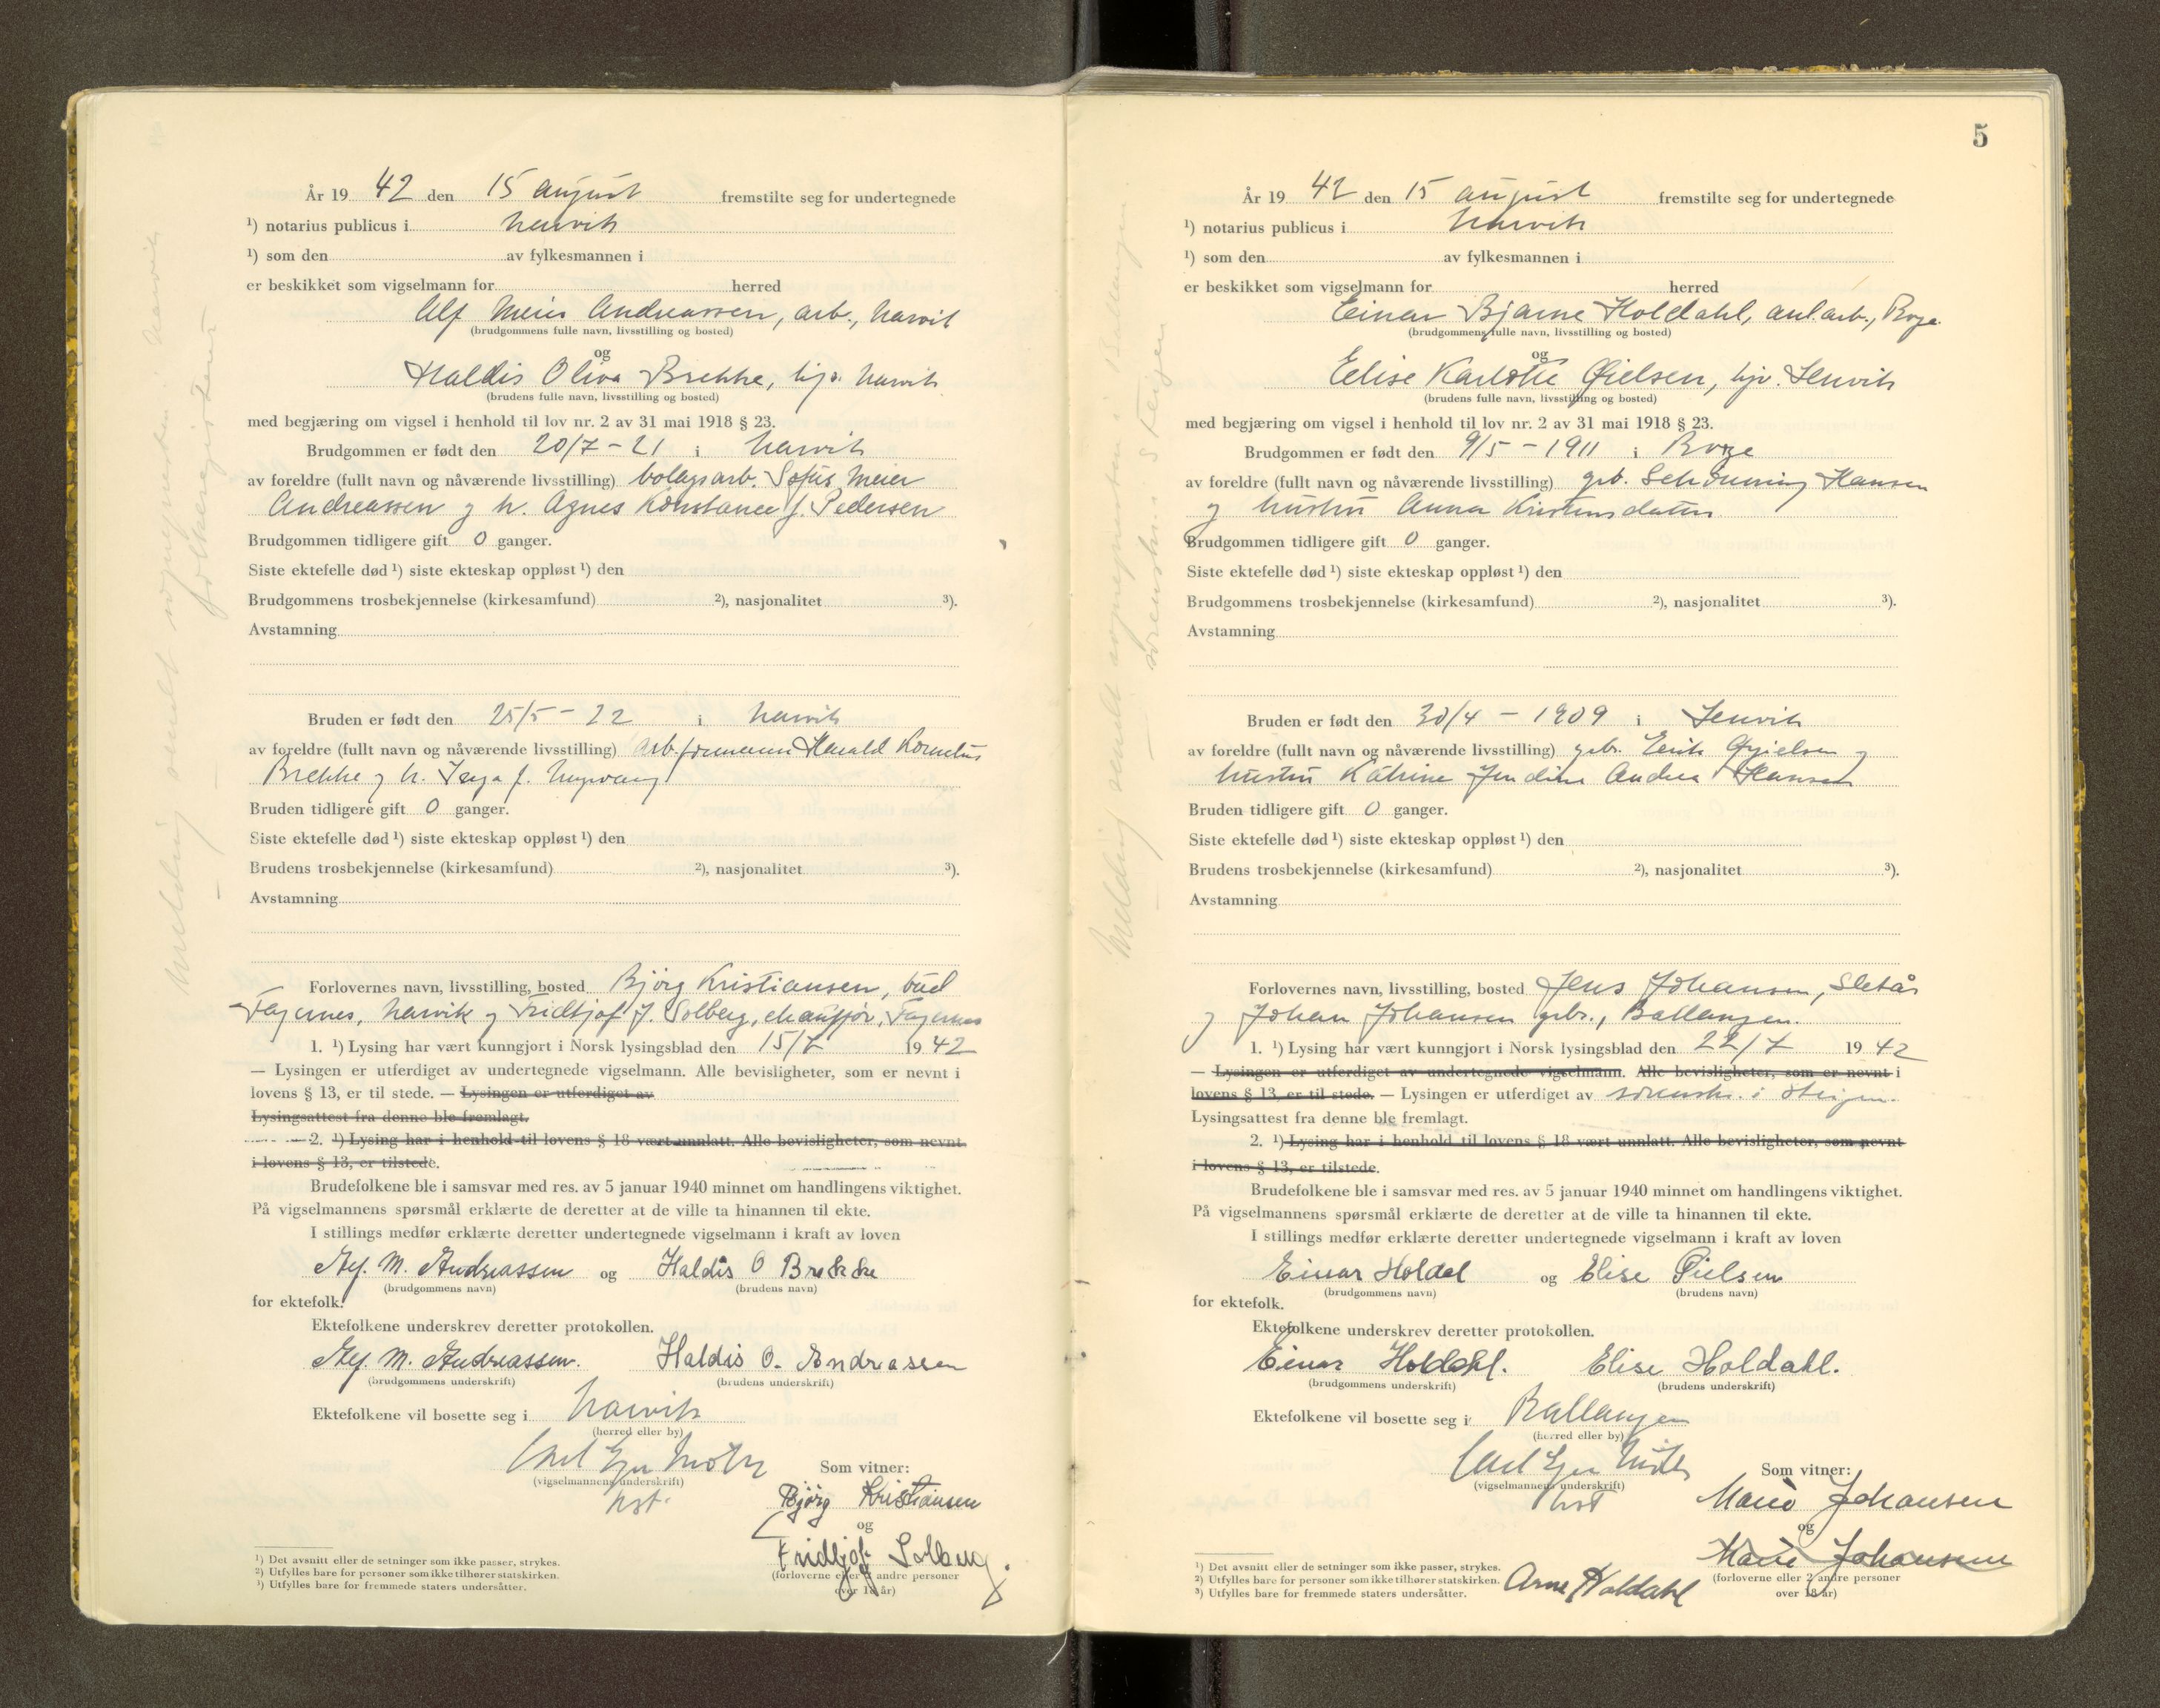 År 19 42 den 15 august fremstilte seg for undertegnede
¹) notarius publicus i Narvik
¹) som den av fylkesmannen i
er beskikket som vigselmann for herred
Alf Meier Andreassen, arb., Narvik
(brudgommens fulle navn, livsstilling og bosted)
og
Haldis Oliva Brekke, hjv. Narvik
(brudens fulle navn, livsstilling og bosted)
med begjæring om vigsel i henhold til lov nr. 2 av 31 mai 1918 § 23.
Brudgommen er født den 20/7 - 21 i Narvik
av foreldre (fullt navn og nåværende livsstilling) bolagsarb. Sofus Meier
Andreassen og h. Agnes Konstance f. Pedersen
Brudgommen tidligere gift 0 ganger.
Siste ektefelle død ¹) siste ekteskap oppløst ¹) den
Brudgommens trosbekjennelse (kirkesamfund) ²), nasjonalitet ³).
Avstamning
Bruden er født den 25/5 - 22 i Narvik
av foreldre (fullt navn og nåværende livsstilling) arb.formann Harald Kornelius
Brekke og h. f.
Bruden tidligere gift 0 ganger.
Siste ektefelle død ¹) siste ekteskap oppløst ¹) den
Brudens trosbekjennelse (kirkesamfund) ²), nasjonalitet ³).
Avstamning
Forlovernes navn, livsstilling, bosted Bjørg Kristiansen, bud
Fagernes, Narvik og Fridtjof J. Solberg, chauffør, Fagernes
1. ¹) Lysing har vært kunngjort i Norsk lysingsblad den 15/7 19 42
— Lysingen er utferdiget av undertegnede vigselmann. Alle bevisligheter, som er nevnt i
lovens § 13, er til stede. — Lysingen er utferdiget av
Lysingsattest fra denne ble fremlagt.
— 2. ¹) Lysing har i henhold til lovens § 18 vært unnlatt. Alle bevisligheter, som nevnt
i lovens § 13, er tilstede.
Brudefolkene ble i samsvar med res. av 5 januar 1940 minnet om handlingens viktighet.
På vigselmannens spørsmål erklærte de deretter at de ville ta hinannen til ekte.
I stillings medfør erklærte deretter undertegnede vigselmann i kraft av loven
Alf. M. Andreassen og Haldis O Brekke
(brudgommens navn) (brudens navn)
for ektefolk.
Ektefolkene underskrev deretter protokollen.
Alf. M. Andreassen. Haldis O. Andreassen
(brudgommens underskrift) (brudens underskrift)
Ektefolkene vil bosette seg i Narvik
(herred eller by)
Carl
(vigselmannens underskrift)
Som vitner:
Bjørg Kristiansen
og
Fridtjof Solberg.
(forloverne eller 2 andre personer
over 18 år)
¹) Det avsnitt eller de setninger som ikke passer, strykes.
²) Utfylles bare for personer som ikke tilhører statskirken.
³) Utfylles bare for fremmede staters undersåtter.
Melding sendt sognepresten i Narvik
— folkeregisteret
5
År 19 42 den 15 august fremstilte seg for undertegnede
¹) notarius publicus i Narvik
¹) som den av fylkesmannen i
er beskikket som vigselmann for herred
Einar Bjarne Holdahl, anl.arb.,
(brudgommens fulle navn, livsstilling og bosted)
og
Elise Karlotte Øielsen, hjv.
(brudens fulle navn, livsstilling og bosted)
med begjæring om vigsel i henhold til lov nr. 2 av 31 mai 1918 § 23.
Brudgommen er født den 9/5 - 1911 i
av foreldre (fullt navn og nåværende livsstilling) grb. Schønning Hansen
og hustru Anna Kristensdatter
Brudgommen tidligere gift 0 ganger.
Siste ektefelle død ¹) siste ekteskap oppløst ¹) den
Brudgommens trosbekjennelse (kirkesamfund) ²), nasjonalitet ³).
Avstamning
Bruden er født den 30/4 - 1909 i
av foreldre (fullt navn og nåværende livsstilling) grbr. Erik Øyielsen og
hustru Katrine Jendine Andrea Hansen
Bruden tidligere gift 0 ganger.
Siste ektefelle død ¹) siste ekteskap oppløst ¹) den
Brudens trosbekjennelse (kirkesamfund) ²), nasjonalitet ³).
Avstamning
Forlovernes navn, livsstilling, bosted Jens Johansen, Sletår
og Johan Johansen grbr., Ballangen.
1. ¹) Lysing har vært kunngjort i Norsk lysingsblad den 22/7 19 42
— Lysingen er utferdiget av undertegnede vigselmann. Alle bevisligheter, som er nevnt i
lovens § 13, er til stede. — Lysingen er utferdiget av sorenskr. i Steigen.
Lysingsattest fra denne ble fremlagt.
2. ¹) Lysing har i henhold til lovens § 18 vært unnlatt. Alle bevisligheter, som nevnt
i lovens § 13, er tilstede.
Brudefolkene ble i samsvar med res. av 5 januar 1940 minnet om handlingens viktighet.
På vigselmannens spørsmål erklærte de deretter at de ville ta hinannen til ekte.
I stillings medfør erklærte deretter undertegnede vigselmann i kraft av loven
Einar Holdal og Elise Øielsen
(brudgommens navn) (brudens navn)
for ektefolk.
Ektefolkene underskrev deretter protokollen.
Einar Holdahl. Elise Holdahl.
(brudgommens underskrift) (brudens underskrift)
Ektefolkene vil bosette seg i Ballangen
(herred eller by)
Carl
(vigselmannens underskrift)
Som vitner:
Marie Johansen
og
Marie Johansen
(forloverne eller 2 andre personer
over 18 år)
Arne Holdahl
¹) Det avsnitt eller de setninger som ikke passer, strykes.
²) Utfylles bare for personer som ikke tilhører statskirken.
³) Utfylles bare for fremmede staters undersåtter.
Melding sendt sognepresten i Ballangen
— sorenskr. i Steigen